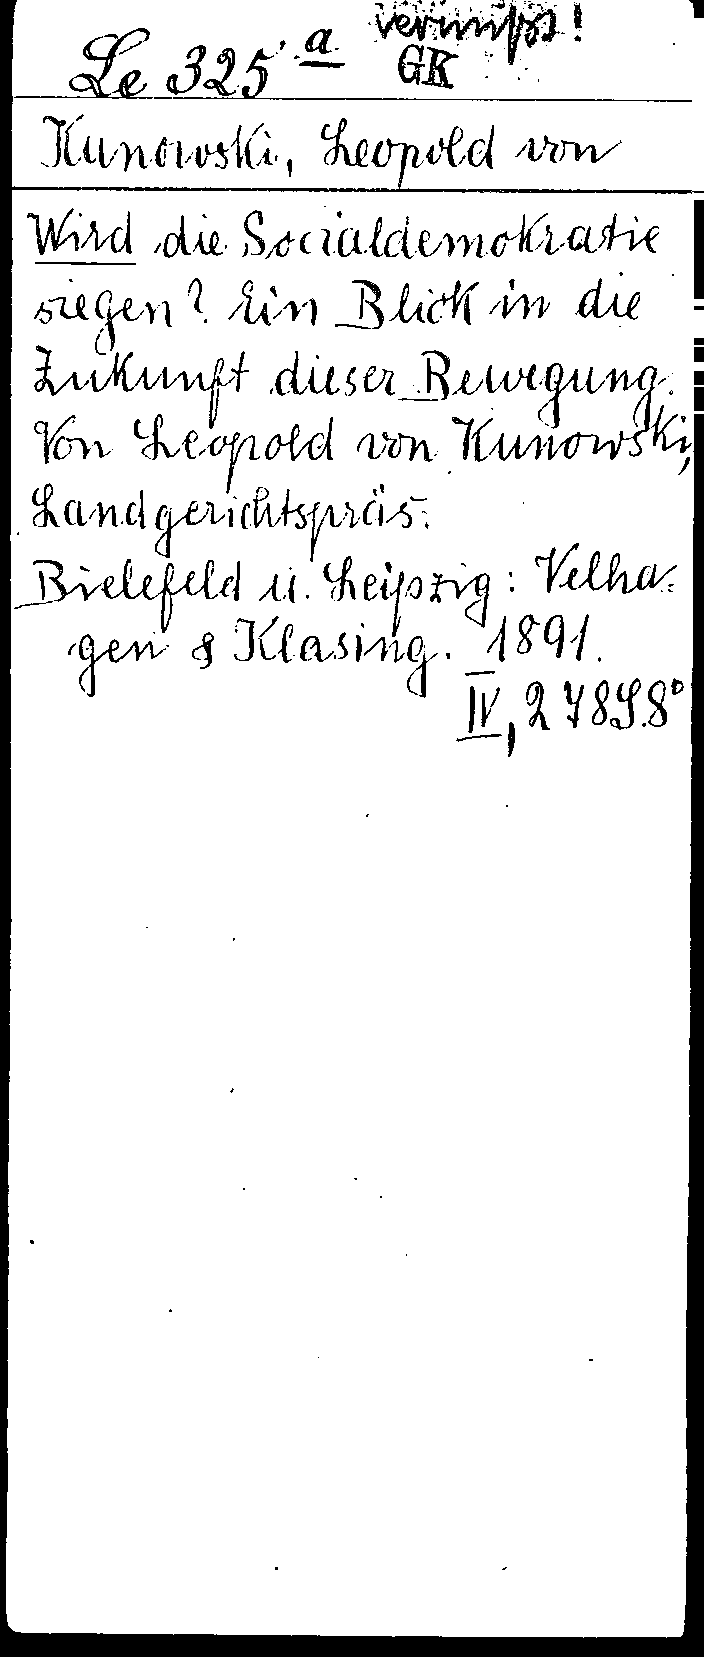 vermißt!
Le 325 a GK
Kunowski, Leopold von
Wird die Socialdemokratie
siegen? Ein Blick in die
Zukunft dieser Bewegung.
Von Leopold von Kunowski,
Landgerichtspräs.
Bielefeld u. Leipzig: Velha-
gen & Klasing. 1891.
IV, 278 S. 8°